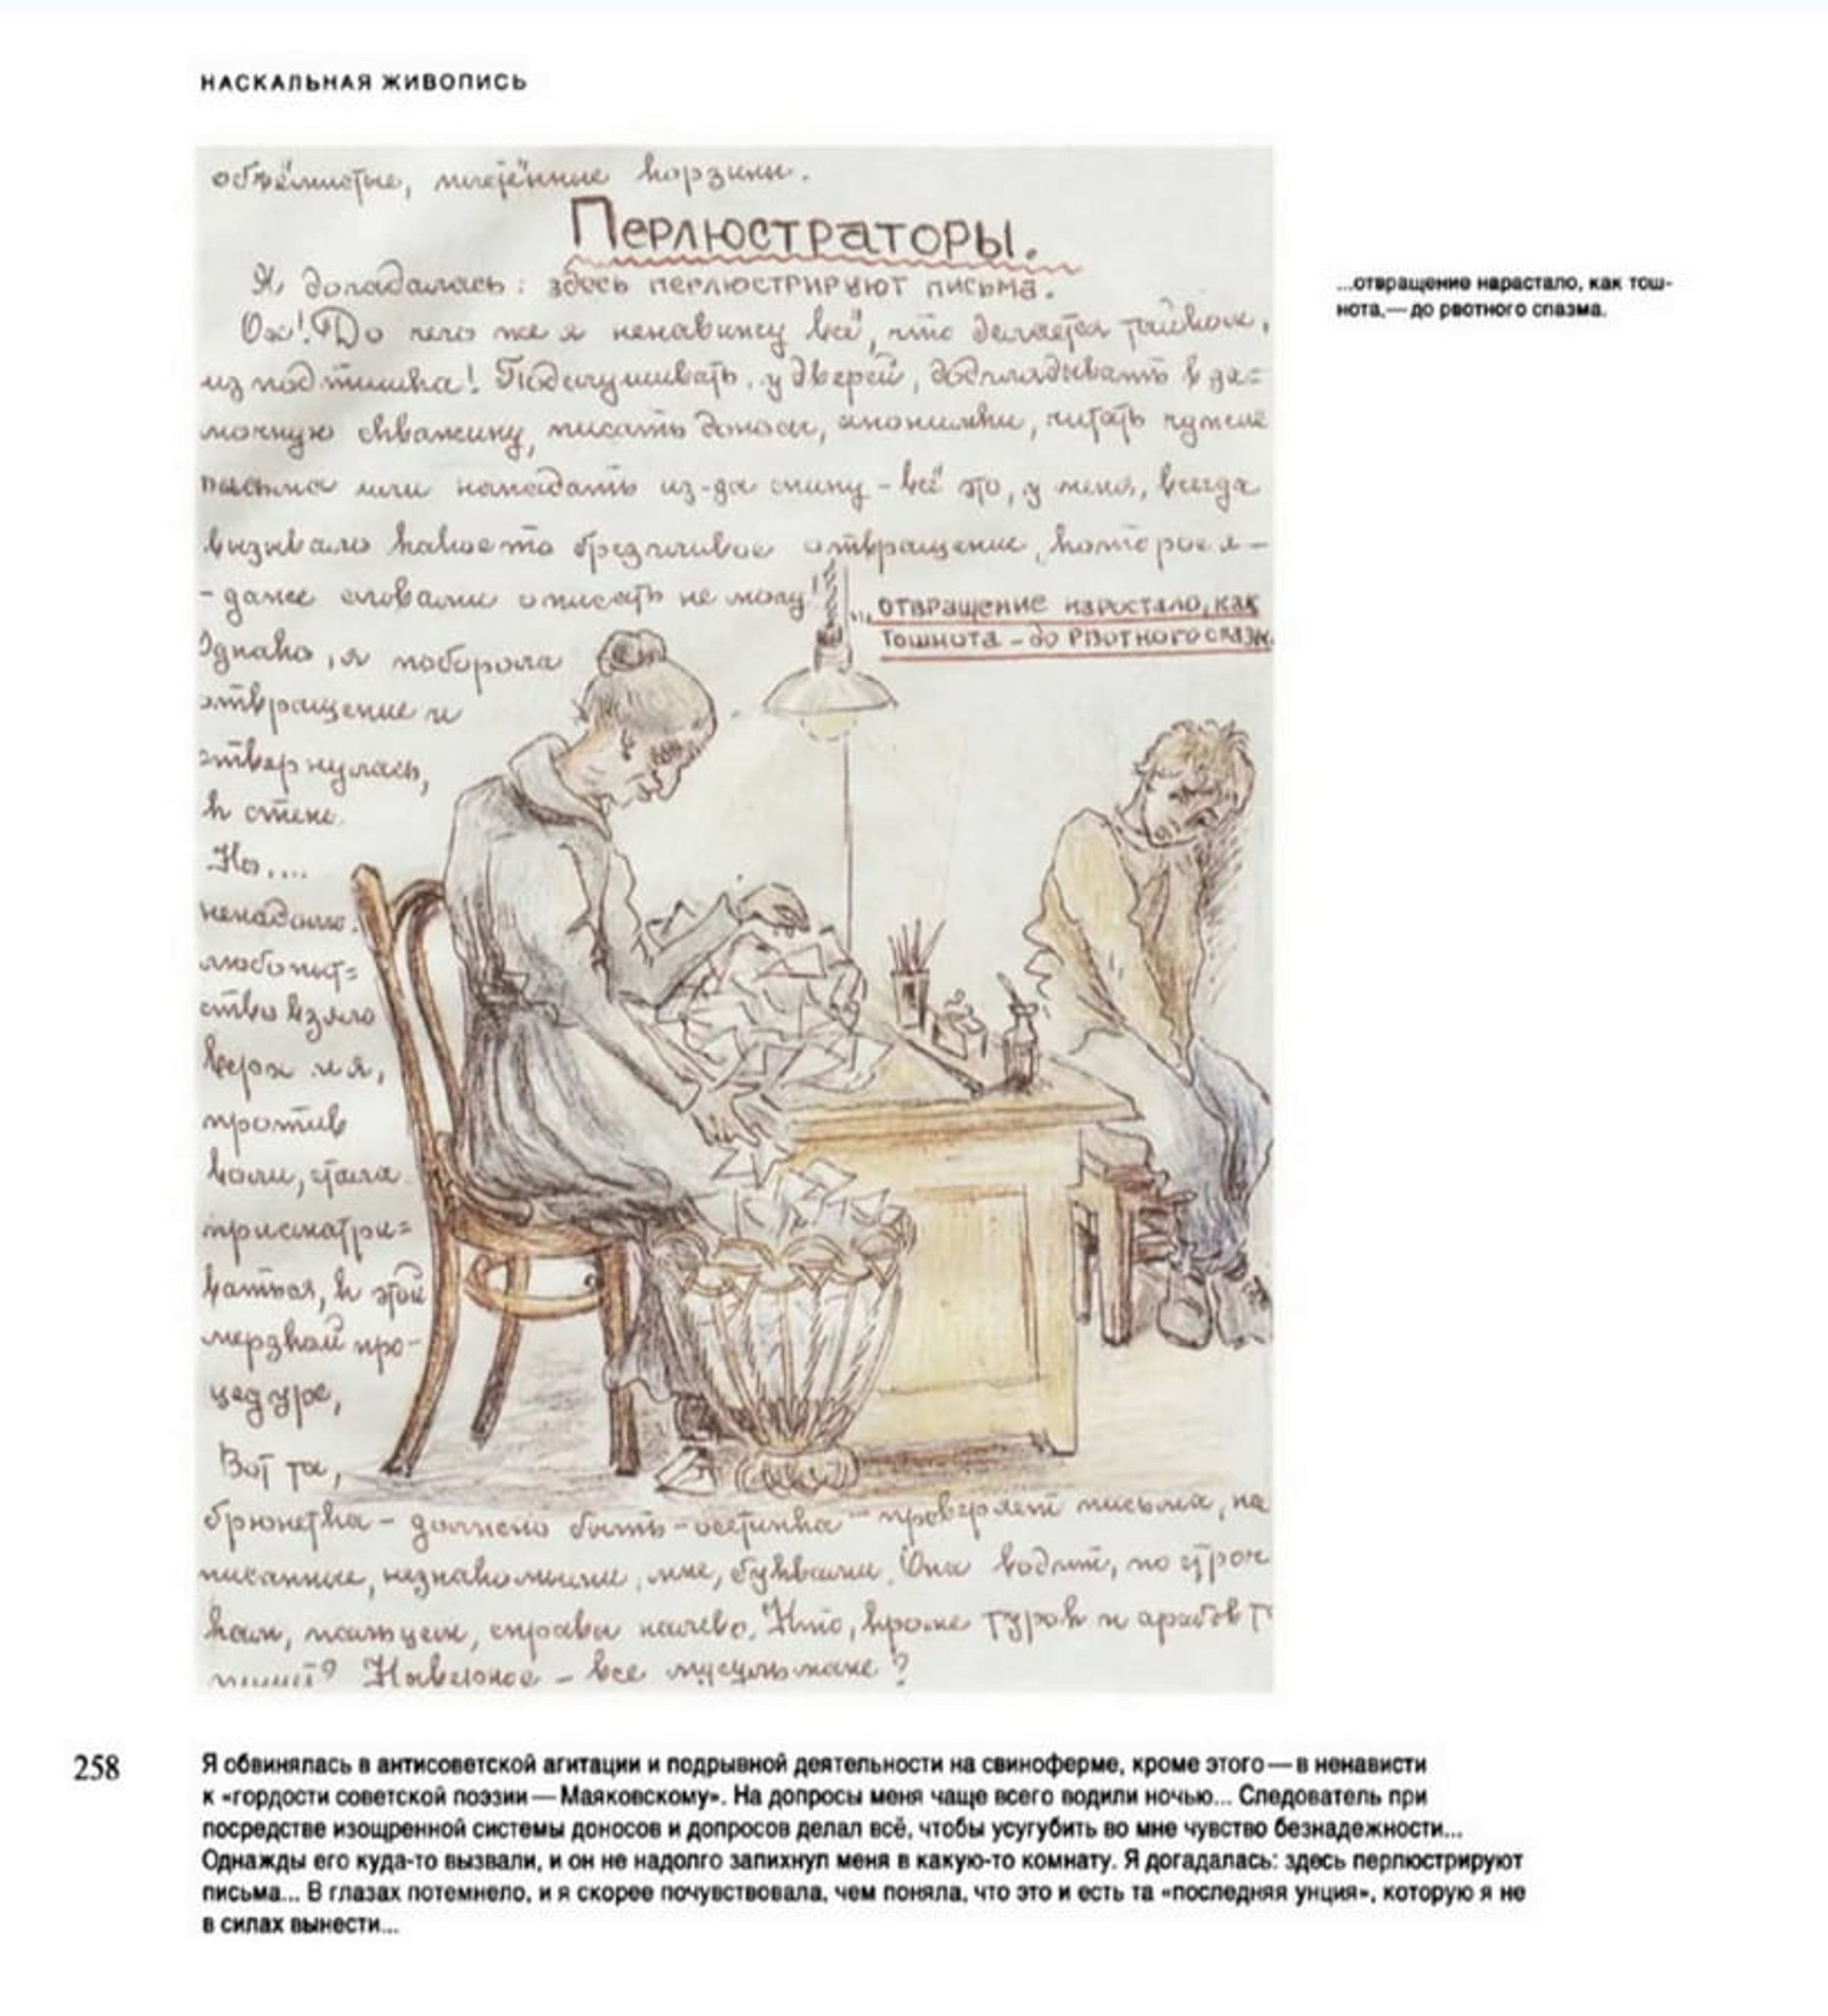 НАСКАЛЬНАЯ ЖИВОПИСЬ
объёмистые, плетённые корзины.
Перлюстраторы.
Я догадалась: здесь перлюстрируют письма.
Ох! До чего же я ненавижу всё, что делается тайком,
из подтишка! Подслушивать у дверей, подглядывать в за=
мочную скважину, писать доносы, анонимки, читать чужие
письма или нападать из-за спины - всё это, у меня, всегда
вызывало какое то брезгливое отвращение, которое я -
- даже словами описать не могу!
... отвращение наростало, как
тошнота - до рвотного спазм
Однако, я поборола
отвращение и
отвернулась,
к стене.
Но....
ненадолго.
любопыт=
ство взяло
верх и я,
против
воли, стала
присматри=
ваться, к этой
мерзкой про-
цедуре,
Вот та,
брюнетка - должно быть - осетинка - проверяет письма, на
писанные, незнакомыми, мне, буквами. Она водит, по строч
кам, пальцем, справа налево. Кто, кроме турок и арабов т
пишет? Наверное - все мусульмане?
...отвращение нарастало, как тош-
нота,— до рвотного спазма.
258
Я обвинялась в антисоветской агитации и подрывной деятельности на свиноферме, кроме этого — в ненависти
к «гордости советской поэзии — Маяковскому». На допросы меня чаще всего водили ночью... Следователь при
посредстве изощренной системы доносов и допросов делал всё, чтобы усугубить во мне чувство безнадежности...
Однажды его куда-то вызвали, и он не надолго запихнул меня в какую-то комнату. Я догадалась: здесь перлюстрируют
письма... В глазах потемнело, и я скорее почувствовала, чем поняла, что это и есть та «последняя унция», которую я не
в силах вынести...